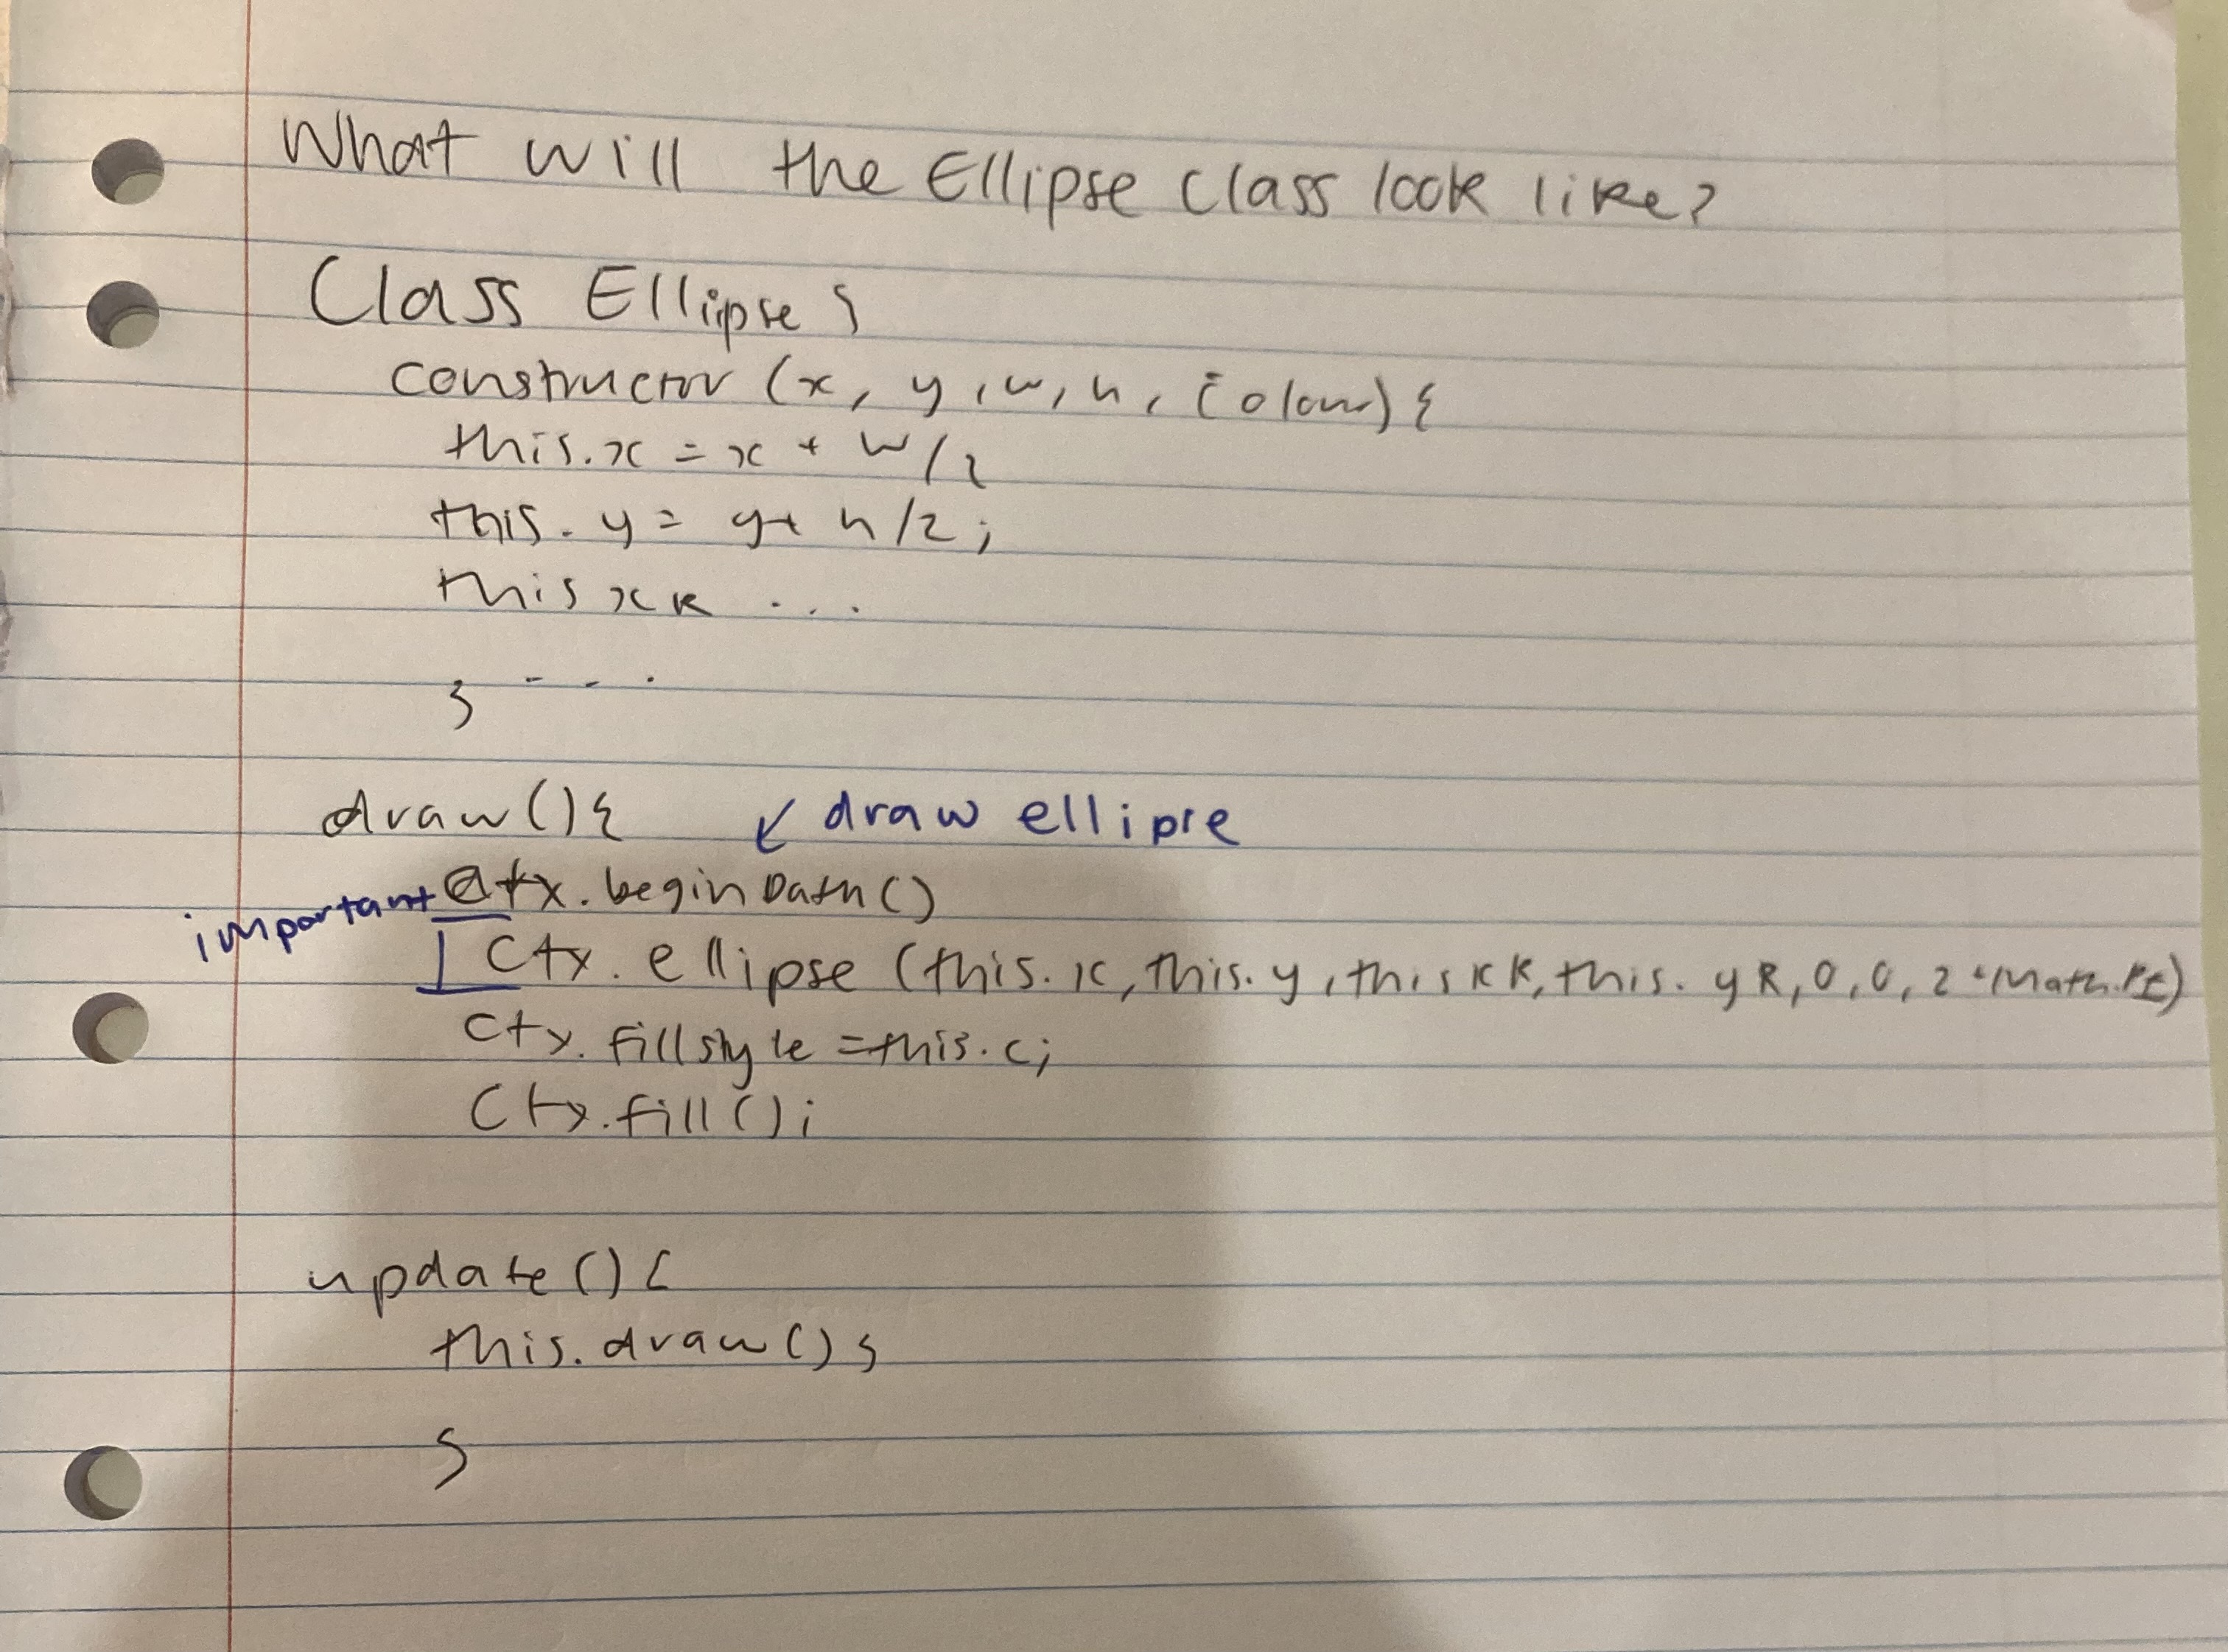 What will the Ellipse class look like?
Class Ellipse {
constructor (x, y, w, h, colour) {
this.x = x + w/2
this.y = y + h/2;
this xR ...
} ...
draw() {
↙ draw ellipse
important
ctx.beginPath()
ctx.ellipse (this.x, this.y, this xR, this.yR, 0, 0, 2*Math.PI)
ctx.fillstyle = this.c;
ctx.fill();
update() {
this.draw();
}